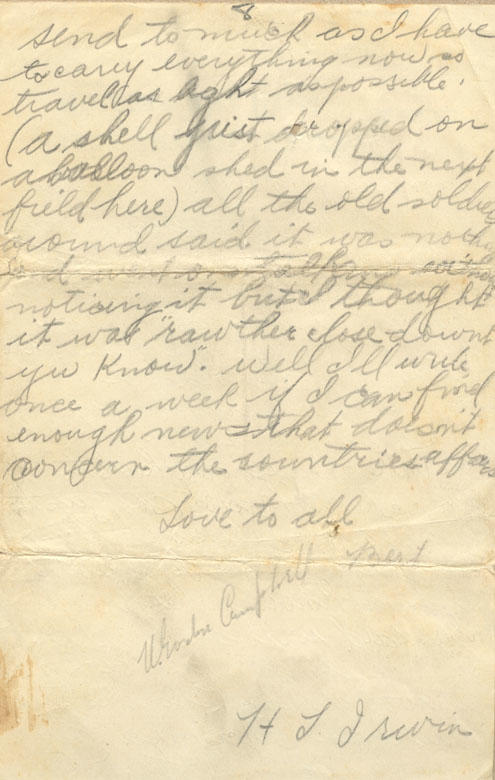 8
send to much as I have
to carry everything now so
travel as light as possible.
(a shell just dropped on
a balloon shed in the next
field here) all the old soldiers
around said it was nothing
and went on talking
noticing it but I thought
it was "rawther close downt
yu know". Well I'll write
once a week if I can find
enough news that doesn't
concern the countries affairs
Love to all
Bert
Campbell
H L Irwin